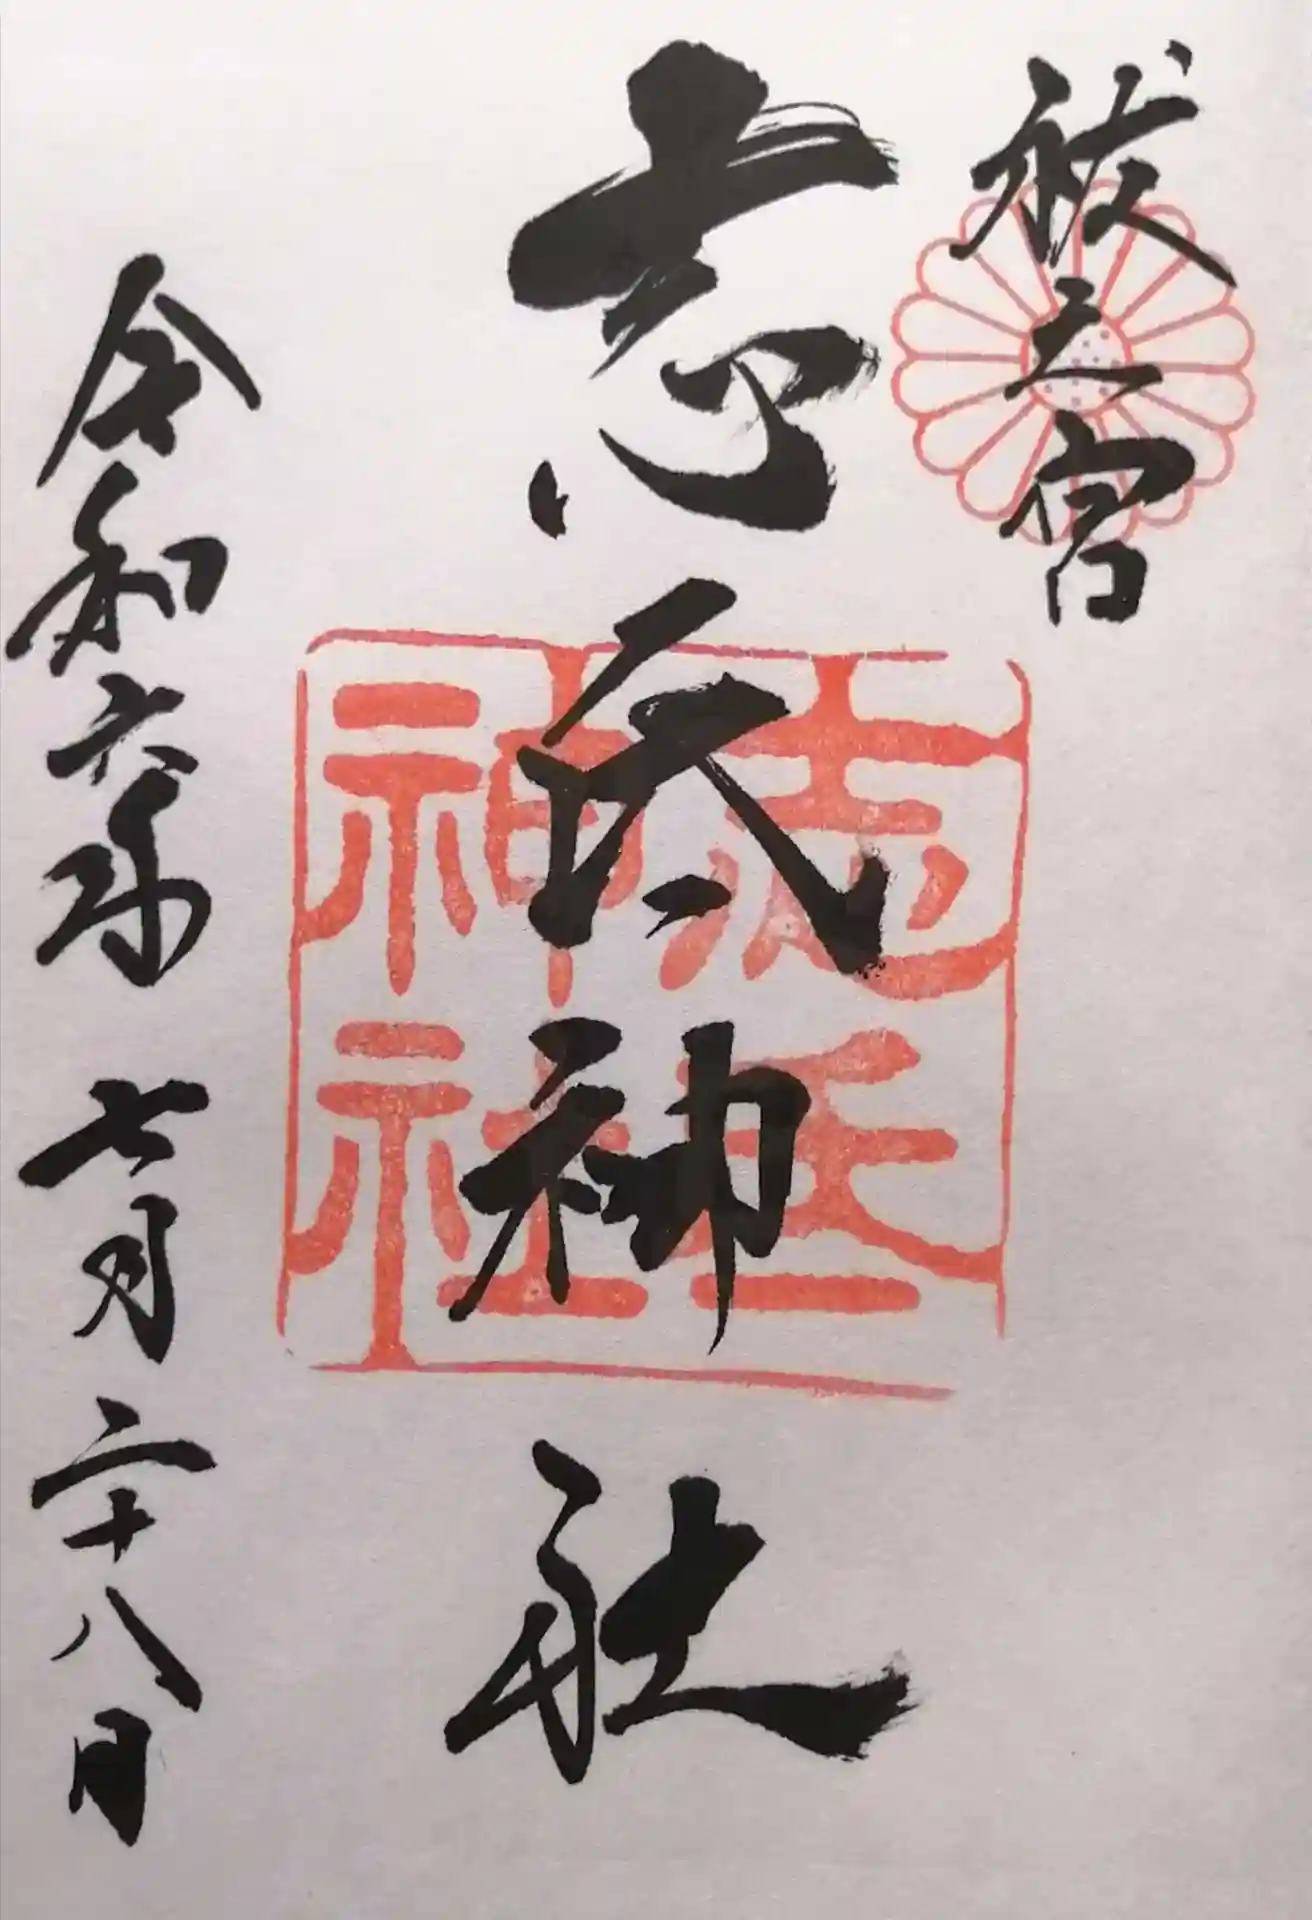 祓之宮
志氐神社
志氐
神社
令和六年七月二十八日